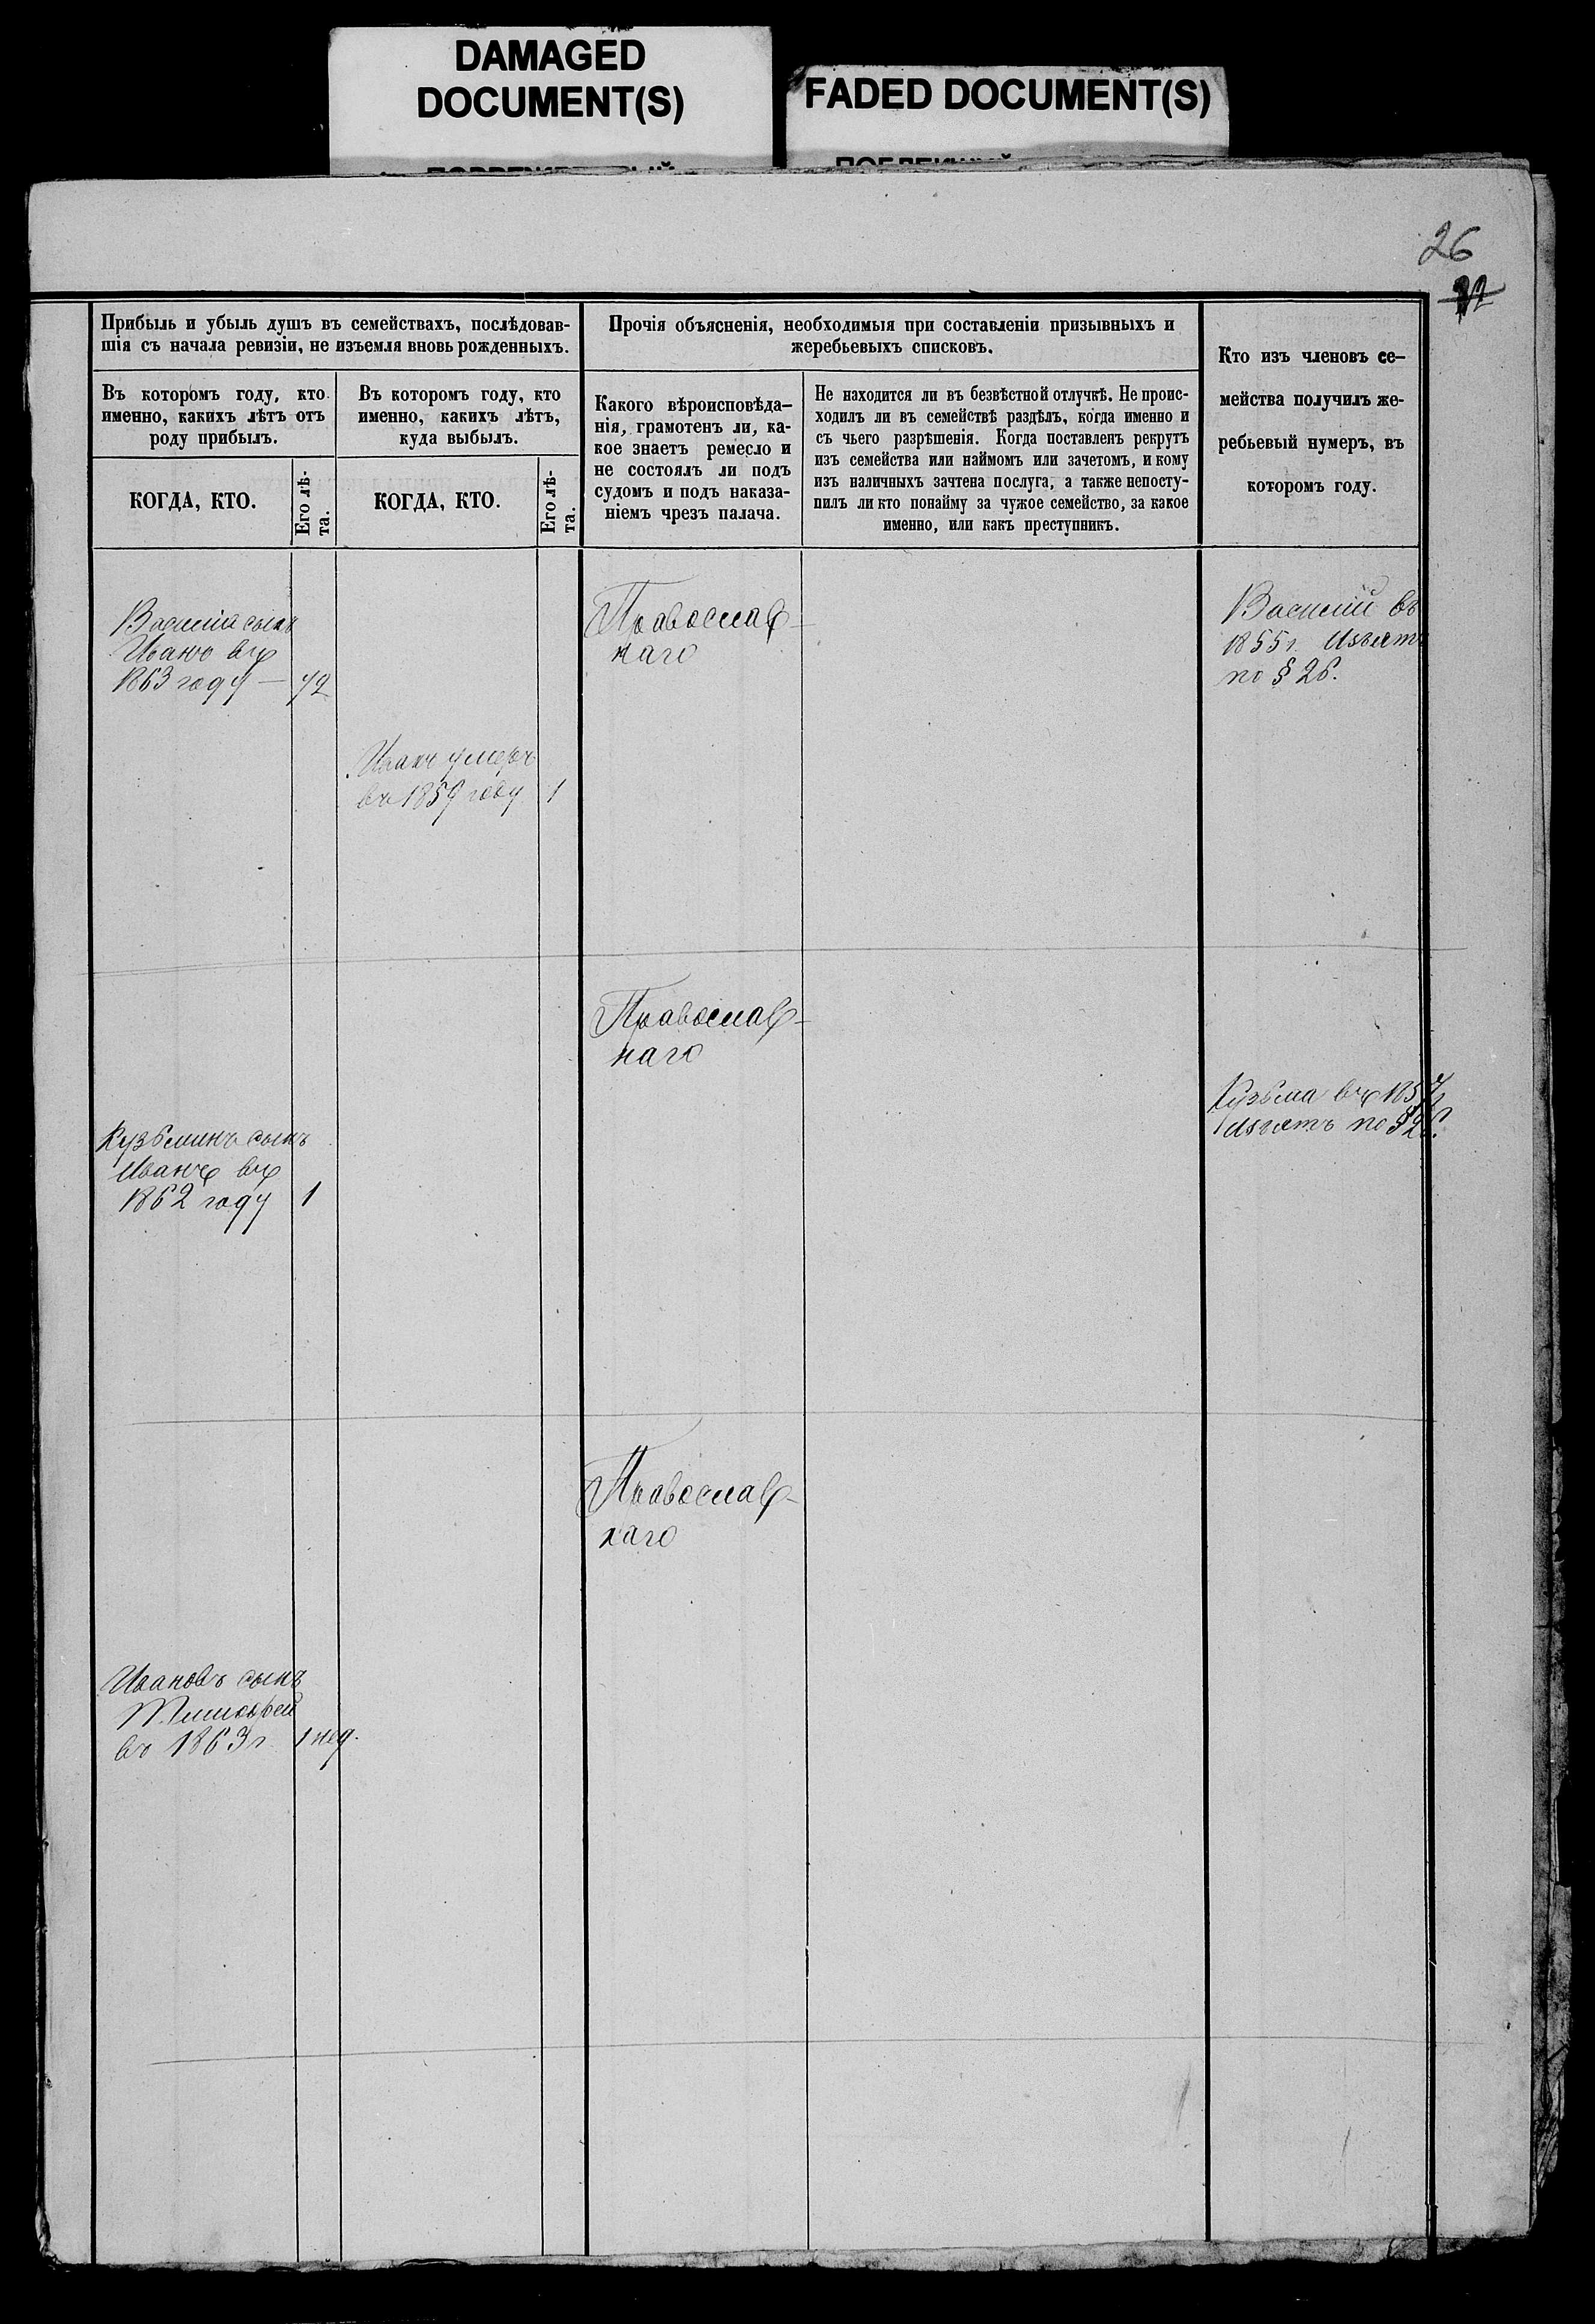 DAMAGED
DOCUMENT(S)
FADED DOCUMENT(S)
26
32
Прибыль и убыль душъ въ семействахъ, послѣдовав-
шія съ начала ревизіи, не изъемля вновь рожденныхъ.
Въ которомъ году, кто
именно, какихъ лѣтъ отъ
роду прибылъ.
КОГДА, КТО.
Его лѣ-
та.
Въ которомъ году, кто
именно, какихъ лѣтъ,
куда выбылъ.
КОГДА, КТО.
Его лѣ-
та.
Прочія объясненія, необходимыя при составленіи призывныхъ и
жеребьевыхъ списковъ.
Какого вѣроисповѣда-
нія, грамотенъ ли, ка-
кое знаетъ ремесло и
не состоялъ ли подъ
судомъ и подъ наказа-
ніемъ чрезъ палача.
Не находится ли въ безвѣстной отлучкѣ. Не проис-
ходилъ ли въ семействѣ раздѣлъ, когда именно и
съ чьего разрѣшенія. Когда поставленъ рекрутъ
изъ семейства или наймомъ или зачетомъ, и кому
изъ наличныхъ зачтена послуга, а также непосту-
пилъ ли кто понайму за чужое семейство, за какое
именно, или какъ преступникъ.
Кто изъ членовъ се-
мейства получилъ же-
ребьевый нумеръ, въ
которомъ году.
Василія сынъ
Иванъ въ
1863 году — 1/2
Православ-
наго
Василій въ
1855 г. Изъятъ
по § 26.
Иванъ умеръ
въ 1859 году 1
Православ-
наго
Кузьма въ 1857
Изъятъ по § 26.
Кузьминъ сынъ
Иванъ въ
1862 году 1
Православ-
наго
Ивановъ сынъ
Тимофей
въ 1863 г 1 нед.